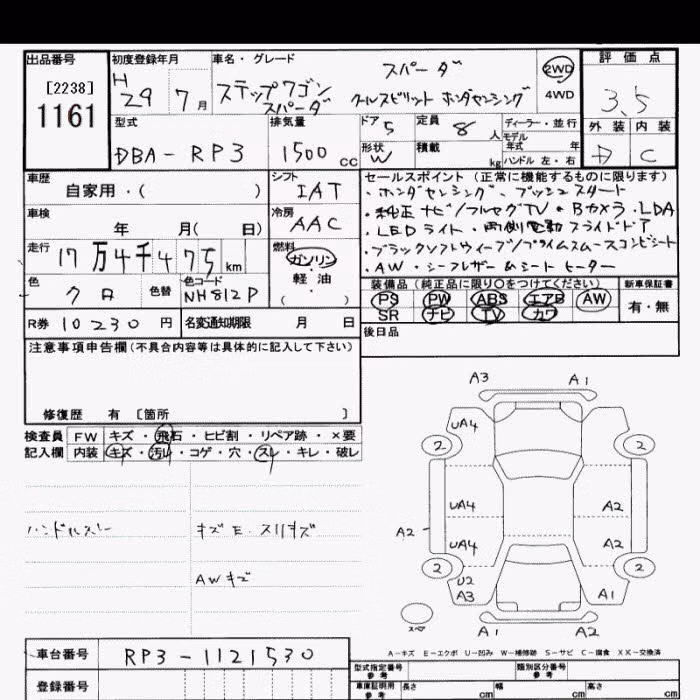 出品番号
[2238]
1161
初度登録年月
H
29 7 月
車名・グレード
スパーダ
ステップワゴン
スパーダ
クールスピリット ホンダセンシング
2WD
4WD
評価点
3.5
外装 内装
D C
型式
DBA-RP3
排気量
1500 cc
ドア
5
定員
8 人
形状
W
積載
kg
ディーラー・並行
モデル
年式 年
ハンドル 左・右
車歴
自家用・( )
シフト
IAT
冷房
AAC
車検
年 月( 日)
走行
17万4千475 km
燃料
ガソリン
軽油
( )
色
クロ
色替
色コード
NH812P
R券 10230 円
名変通知期限 月 日
セールスポイント(正常に機能するものに限ります)
・ホンダセンシング・プッシュスタート
・純正ナビ/フルセグTV・Bカメラ・LDA
・LEDライト・両側電動スライドドア
・AW・シーフレザー&シートヒーター
装備品(純正品に限り○をつけてください)
PS PW ABS エアB AW
SR ナビ TV カワ
新車保証書
有・無
後日品
注意事項申告欄(不具合内容等は具体的に記入して下さい)
修復歴 有 [箇所 ]
検査員
記入欄
FW キズ・飛石・ヒビ割・リペア跡・×要
内装 キズ・汚れ・コゲ・穴・スレ・キレ・破レ
ハンドルスレ
キズE・スリキズ
AWキズ
A3 A1
UA4
2 2
UA4 A2
A2
UA4 A2
2 2
U2
A3 A1
スペア
A1 A2
A-キズ E-エクボ U-凹み W-補修跡 S-サビ C-腐食 XX-交換済
車台番号 RP3-1121530
登録番号
型式指定番号
参考
類別区分番号
参考
車庫証明用
参考
長さ cm 幅 cm 高さ cm